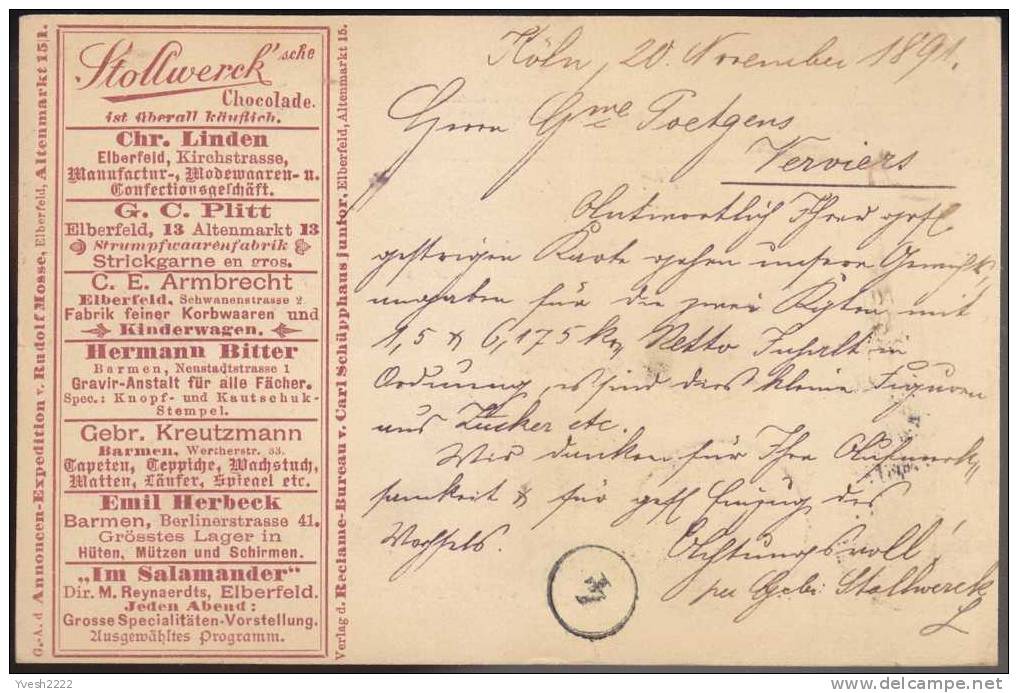 G.-A. d. Annoncen-Expedition v. Rudolf Mosse, Elberfeld, Altenmarkt 15|1.
Stollwerck'sche
Chocolade.
ist überall käuflich.
Chr. Linden
Elberfeld, Kirchstrasse,
Manufactur-, Modewaaren- u.
Confectionsgeschäft.
G. C. Plitt
Elberfeld, 13 Altenmarkt 13
Strumpfwaarenfabrik
Strickgarne en gros.
C. E. Armbrecht
Elberfeld, Schwanenstrasse 2
Fabrik feiner Korbwaaren und
Kinderwagen.
Hermann Bitter
Barmen, Neustadtstrasse 1
Gravir-Anstalt für alle Fächer.
Spec.: Knopf- und Kautschuk-
Stempel.
Gebr. Kreutzmann
Barmen, Wertherstr. 33.
Tapeten, Teppiche, Wachstuch,
Matten, Läufer, Spiegel etc.
Emil Herbeck
Barmen, Berlinerstrasse 41.
Grösstes Lager in
Hüten, Mützen und Schirmen.
„Im Salamander"
Dir. M. Reynaerdts, Elberfeld.
Jeden Abend:
Grosse Specialitäten-Vorstellung.
Ausgewähltes Programm.
Verlag d. Reclame-Bureau v. Carl Schüpphaus junior, Elberfeld, Altenmarkt 15.
Köln, 20. November 1891.
Herrn Gme Poetgens
Verviers
Antwortlich Ihrer gefl
gestrigen Karte gehen unsere Gewichts-
angaben für die zwei Kisten mit
1,5 & 6,175 k Netto Inhalt in
Ordnung, es sind dies kleine Figuren
aus Zucker etc.
Wir danken für Ihre Aufmerk-
samkeit & für gefl Einzug des
Wechsels.
Achtungsvoll
per Gebr. Stollwerck
Yvesh2222
delcampe.net